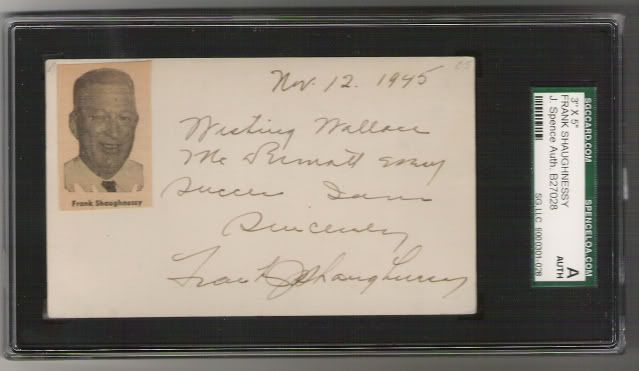 Nov. 12. 1945
Wishing Wallace
Mc Dermott every
Success I am
Sincerely
Frank J Shaughnessy
Frank Shaughnessy
SGCCARD.COM
SPENCELOA.COM
3" X 5"
FRANK SHAUGHNESSY
J. Spence Auth. B27028
SG,LLC 9000301-028
A
AUTH